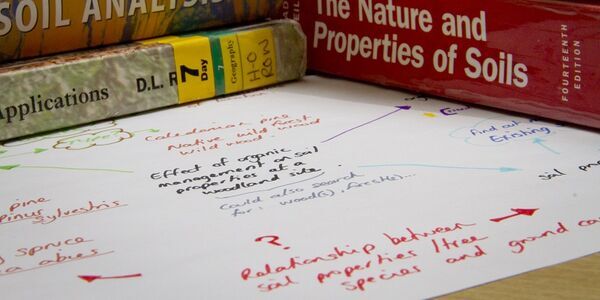 SOIL ANALYSIS
Applications
D.L. R
7
Day
7
Geography
H-O
ROW
The Nature and
Properties of Soils
FOURTEENTH
EDITION
Caledonian pine
Native wild forest
wild wood
Effect of organic
management on soil
properties at a
woodland site
Could also search
for: wood(s), forest(s)...
Find out
Existing
soil
pine
pinus sylvestris
spruce
abies
?
Relationship between
soil properties / tree
species and ground